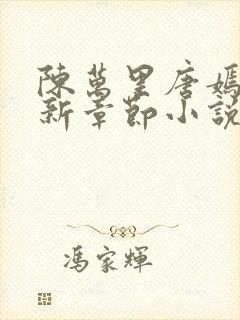 陳萬里唐嫣
新章節小說
馮家輝